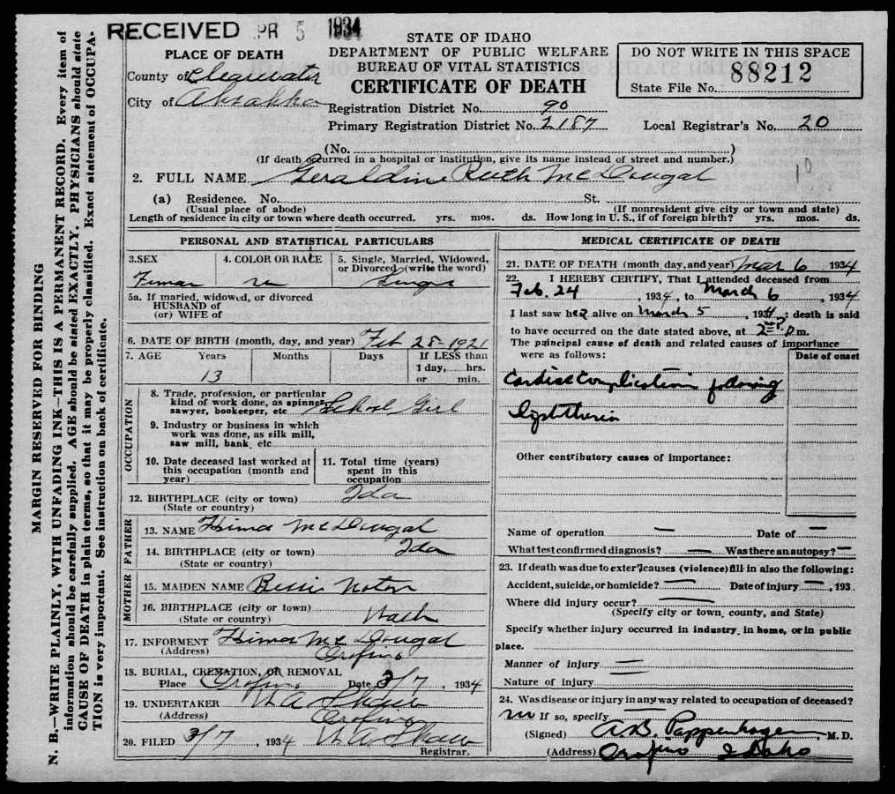 RECEIVED APR 5 1934
STATE OF IDAHO
DEPARTMENT OF PUBLIC WELFARE
BUREAU OF VITAL STATISTICS
CERTIFICATE OF DEATH
DO NOT WRITE IN THIS SPACE
88212
State File No.
PLACE OF DEATH
County of Clearwater
City of Ahsahka
Registration District No. 90
Primary Registration District No. 2187 Local Registrar's No. 20
(No. )
(If death occurred in a hospital or institution, give its name instead of street and number.)
2. FULL NAME Geraldine Ruth McDougal
(a) Residence. No. St.
(Usual place of abode) (If nonresident give city or town and state)
Length of residence in city or town where death occurred. yrs. mos. ds. How long in U. S., if of foreign birth? yrs. mos. ds.
PERSONAL AND STATISTICAL PARTICULARS
3. SEX
4. COLOR OR RACE
5. Single, Married, Widowed,
or Divorced (write the word)
5a. If married, widowed, or divorced
HUSBAND of
(or) WIFE of
6. DATE OF BIRTH (month, day, and year) Feb 28-1921
7. AGE Years Months Days If LESS than
1 day, hrs.
or min.
13
OCCUPATION
8. Trade, profession, or particular
kind of work done, as spinner,
sawyer, bookeeper, etc School Girl
9. Industry or business in which
work was done, as silk mill,
saw mill, bank, etc
10. Date deceased last worked at
this occupation (month and
year)
11. Total time (years)
spent in this
occupation
12. BIRTHPLACE (city or town) Ida
(State or country)
FATHER
13. NAME McDougal
14. BIRTHPLACE (city or town) Ida
(State or country)
MOTHER
15. MAIDEN NAME Bessie
16. BIRTHPLACE (city or town)
(State or country) Wash
17. INFORMENT McDougal
(Address) Orofino
18. BURIAL, CREMATION, OR REMOVAL
Place Orofino Date 3/7, 1934
19. UNDERTAKER
(Address) Orofino
20. FILED 3/7, 1934
Registrar.
MEDICAL CERTIFICATE OF DEATH
21. DATE OF DEATH (month, day, and year) Mar 6 1934
22. I HEREBY CERTIFY, That I attended deceased from
Feb. 24, 1934, to March 6, 1934
I last saw her alive on March 5, 1934; death is said
to have occurred on the date stated above, at 2 P.m.
The principal cause of death and related causes of importance
were as follows:
Date of onset
Cardiac Complication following
Other contributory causes of importance:
Name of operation — Date of —
What test confirmed diagnosis? — Was there an autopsy? —
23. If death was due to external causes (violence) fill in also the following:
Accident, suicide, or homicide? — Date of injury —, 193
Where did injury occur? —
(Specify city or town, county, and State)
Specify whether injury occurred in industry, in home, or in public
place.
Manner of injury —
Nature of injury —
24. Was disease or injury in any way related to occupation of deceased?
If so, specify
(Signed) A.B. Pappenhagen M. D.
(Address) Orofino Idaho
MARGIN RESERVED FOR BINDING
N. B.—WRITE PLAINLY, WITH UNFADING INK—THIS IS A PERMANENT RECORD. Every item of
information should be carefully supplied. AGE should be stated EXACTLY. PHYSICIANS should state
CAUSE OF DEATH in plain terms, so that it may be properly classified. Exact statement of OCCUPA-
TION is very important. See instruction on back of certificate.